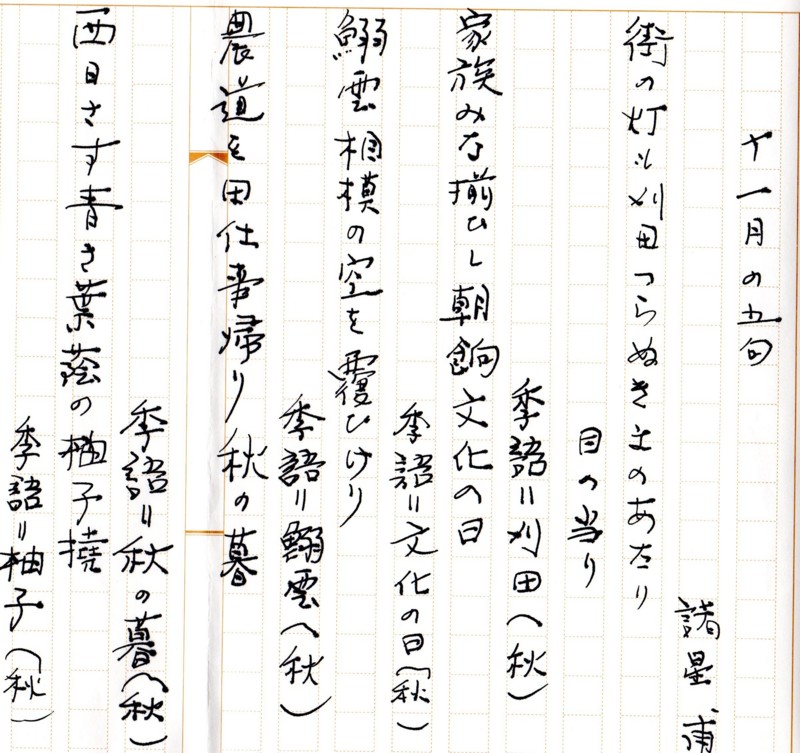 十一月の五句
諸星甫
街の灯も刈田つらぬきまのあたり
目の当り
季語=刈田(秋)
家族みな揃ひし朝餉文化の日
季語=文化の日(秋)
鰯雲相模の空を覆ひけり
季語=鰯雲(秋)
農道を田仕事帰り秋の暮
季語=秋の暮(秋)
西日さす青き葉蔭の柚子撓
季語=柚子(秋)